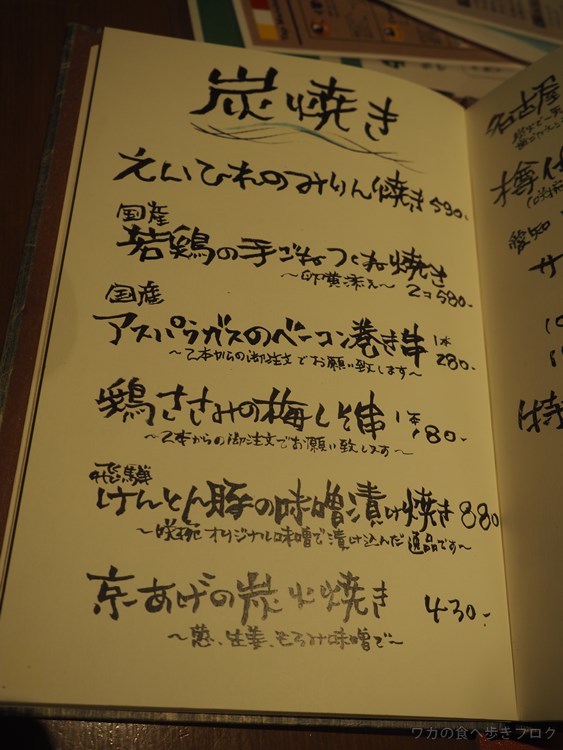 炭焼き
えいひれのみりん焼き 590-
国産
若鶏の手ごねつくね焼き
〜卵黄添え〜 2コ 580-
国産
アスパラガスのベーコン巻き串 1本 280-
〜2本からの御注文でお願い致します〜
鶏ささみの梅しそ串 1本 180-
〜2本からの御注文でお願い致します〜
飛騨
けんとん豚の味噌漬け焼き 880
オリジナル味噌で漬け込んだ逸品です〜
京あげの炭火焼き 430-
〜葱、生姜、もろみ味噌で〜
名古屋
愛知
サ
特
ワカの食べ歩きブログ